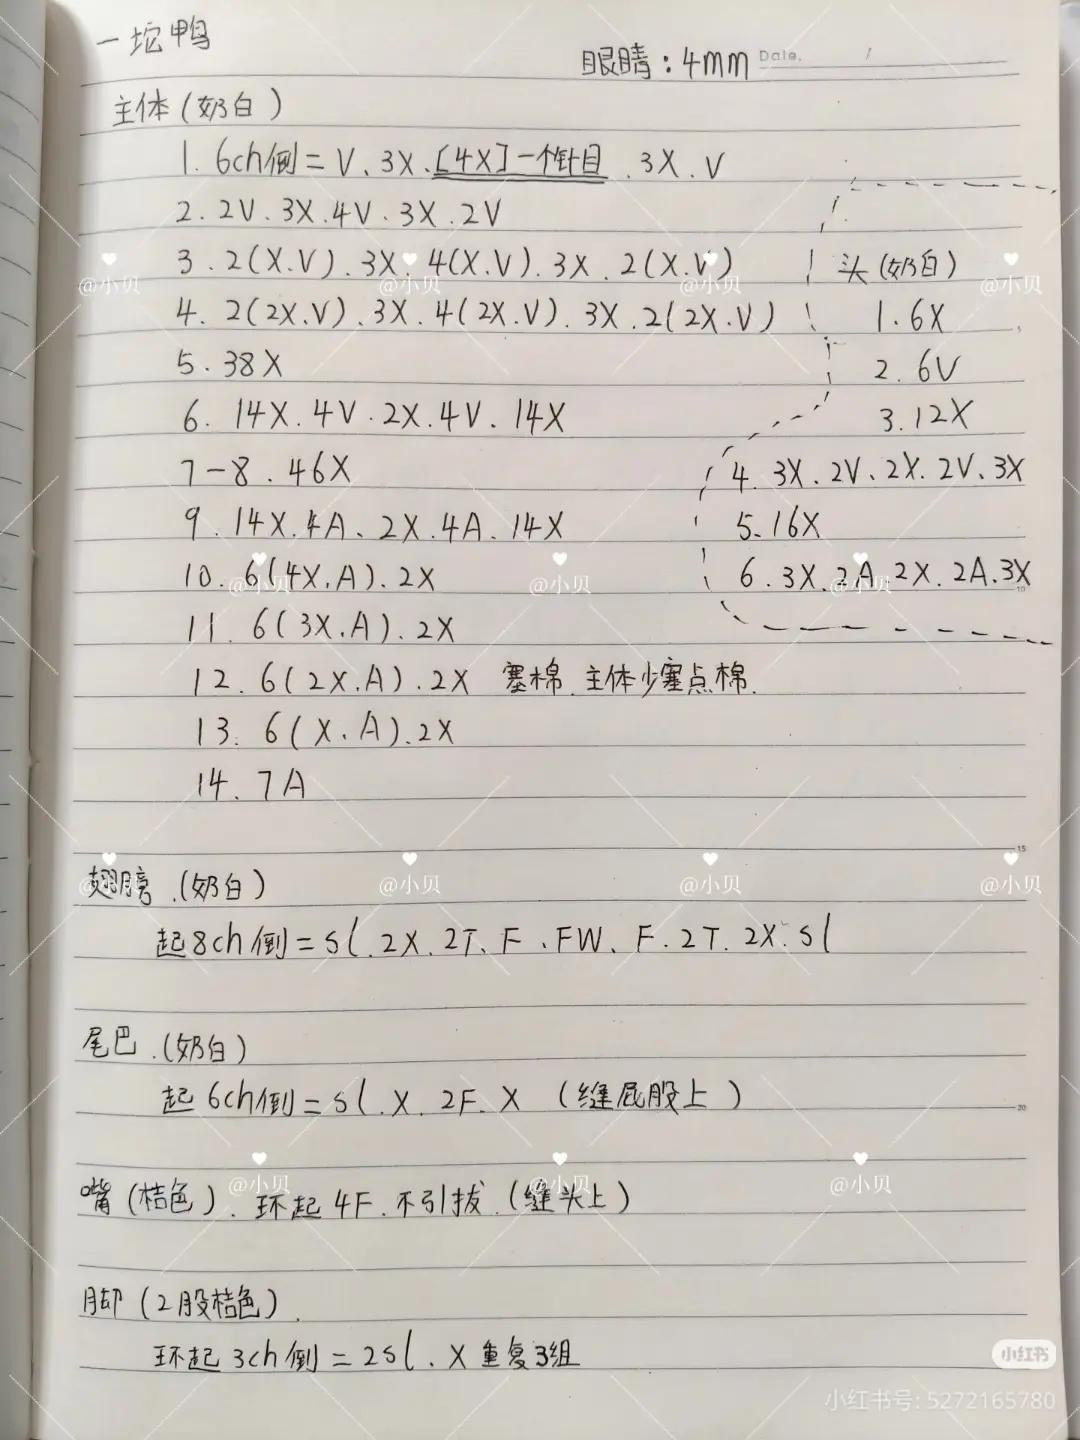 一坨鸭
眼睛：4mm
Date.
主体(奶白)
1. 6ch倒=V、3X.[4X]一个针目.3X.V
2. 2V.3X.4V.3X.2V
3. 2(X.V).3X.4(X.V).3X.2(X.V)
4. 2(2X.V).3X.4(2X.V).3X.2(2X.V)
5. 38X
6. 14X.4V.2X.4V.14X
7-8. 46X
9. 14X.4A、2X.4A.14X
10. 6(4X.A).2X
11. 6(3X.A).2X
12. 6(2X.A).2X 塞棉.主体少塞点棉.
13. 6(X.A).2X
14. 7A
头(奶白)
1. 6X
2. 6V
3. 12X
4. 3X.2V、2X.2V、3X
5. 16X
6. 3X.2A.2X.2A.3X
翅膀.(奶白)
起8ch倒=sl.2X.2T、F、FW、F.2T.2X.sl
尾巴.(奶白)
起6ch倒=sl.X.2F.X (缝屁股上)
嘴(桔色).环起4F.不引拔.(缝头上)
脚(2股桔色).
环起3ch倒=2sl.X重复3组
10
15
20
@小贝
@小贝
@小贝
@小贝
@小贝
@小贝
@小贝
@小贝
@小贝
@小贝
@小贝
@小贝
@小贝
@小贝
小红书
小红书号: 5272165780